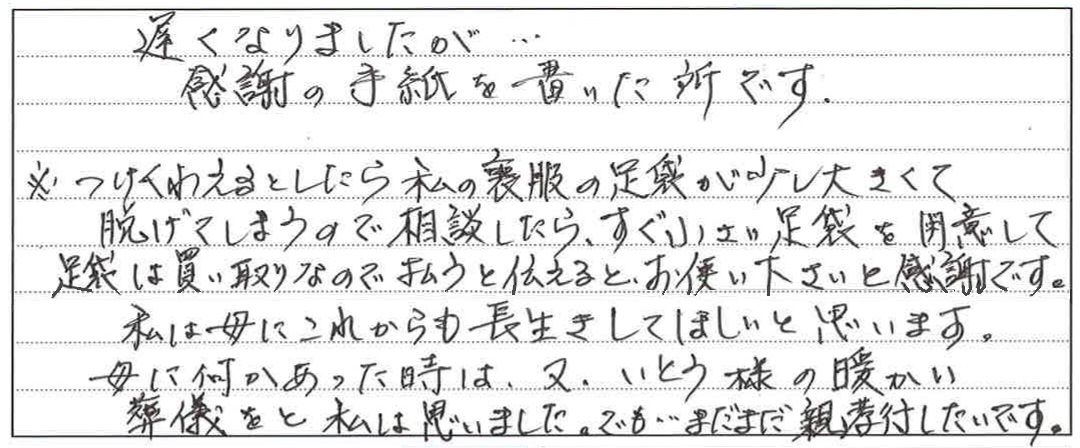 遅くなりましたが…
感謝の手紙を書いた所です.
※つけくわえるとしたら私の喪服の足袋が少し大きくて
脱げてしまうので相談したら、すぐ小さい足袋を用意して
足袋は買い取りなので払うと伝えると、お使い下さいと感謝です。
私は母にこれからも長生きしてほしいと思います。
母に何かあった時は、又、いとう様の暖かい
葬儀をと私は思いました。でも…まだまだ親孝行したいです。